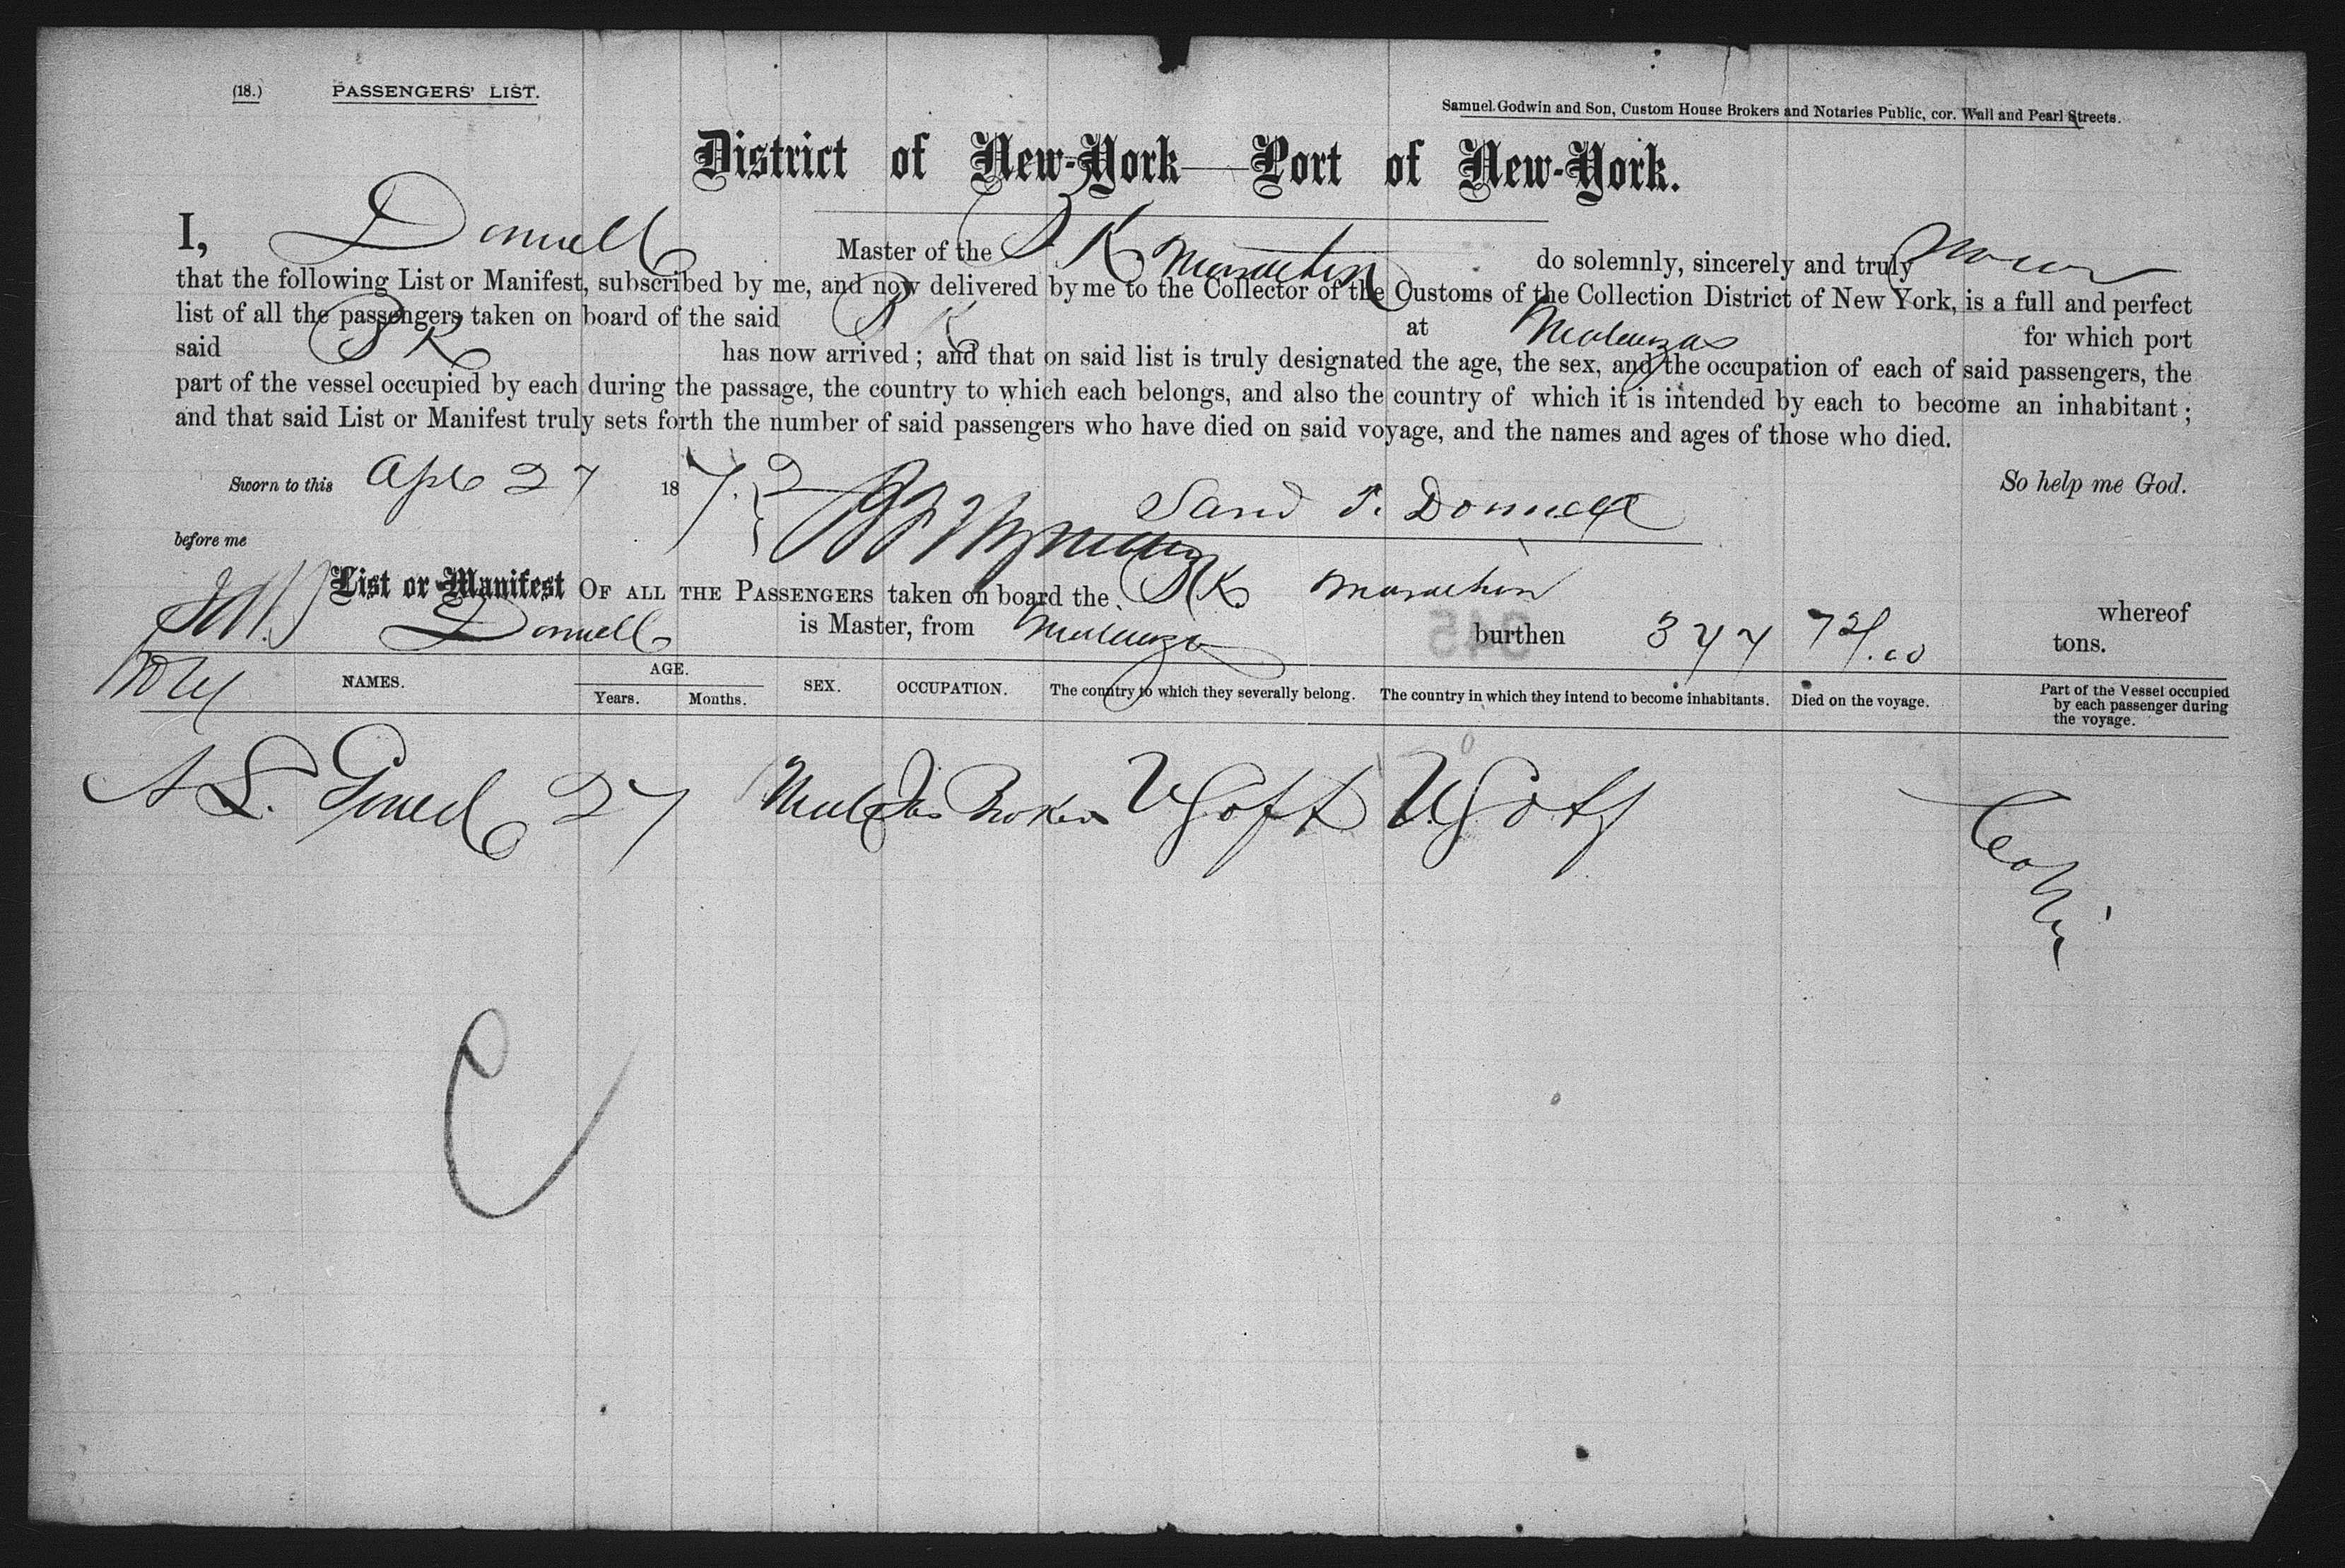 (18.) PASSENGERS' LIST.
Samuel Godwin and Son, Custom House Brokers and Notaries Public, cor. Wall and Pearl Streets.
District of New-York—Port of New-York.
I, Donnell Master of the BK Marathon do solemnly, sincerely and truly swear
that the following List or Manifest, subscribed by me, and now delivered by me to the Collector of the Customs of the Collection District of New York, is a full and perfect
list of all the passengers taken on board of the said BK at Matanzas for which port
said BK has now arrived; and that on said list is truly designated the age, the sex, and the occupation of each of said passengers, the
part of the vessel occupied by each during the passage, the country to which each belongs, and also the country of which it is intended by each to become an inhabitant;
and that said List or Manifest truly sets forth the number of said passengers who have died on said voyage, and the names and ages of those who died.
Sworn to this Apl 27 187.2 So help me God.
T. Donnell
before me
List or Manifest OF ALL THE PASSENGERS taken on board the BK Marathon whereof
Donnell is Master, from Matanzas burthen 377 72/.00 tons.
345
NAMES. AGE. Years. Months. SEX. OCCUPATION. The country to which they severally belong. The country in which they intend to become inhabitants. Died on the voyage. Part of the Vessel occupied by each passenger during the voyage.
A L. 27 Male Broker U S of A U.S of A Cabin
C